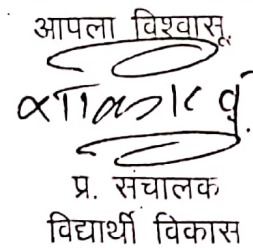 आपला विश्वासू,
प्र. संचालक
विद्यार्थी विकास